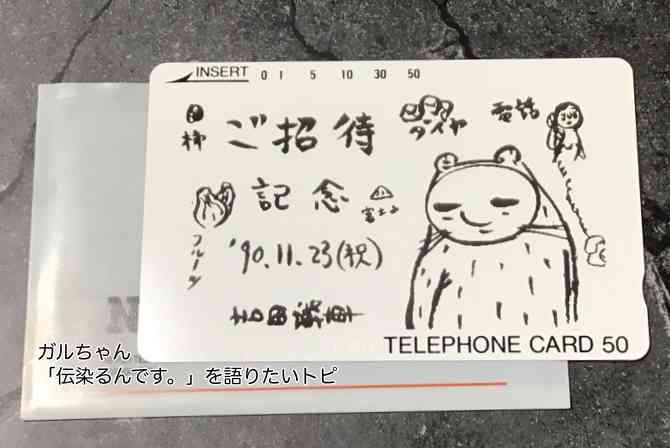 INSERT 0 1 5 10 30 50
ご招待
ダイヤ
電話
記念
富士山
フルーツ
'90.11.23(祝)
吉田戦車
TELEPHONE CARD 50
N
ガルちゃん
「伝染るんです。」を語りたいトピ